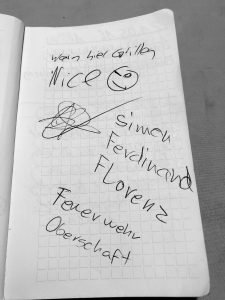 wenn hier
Nice
Simon
Ferdinand
Florenz
Feuerwehr
Oberschaft